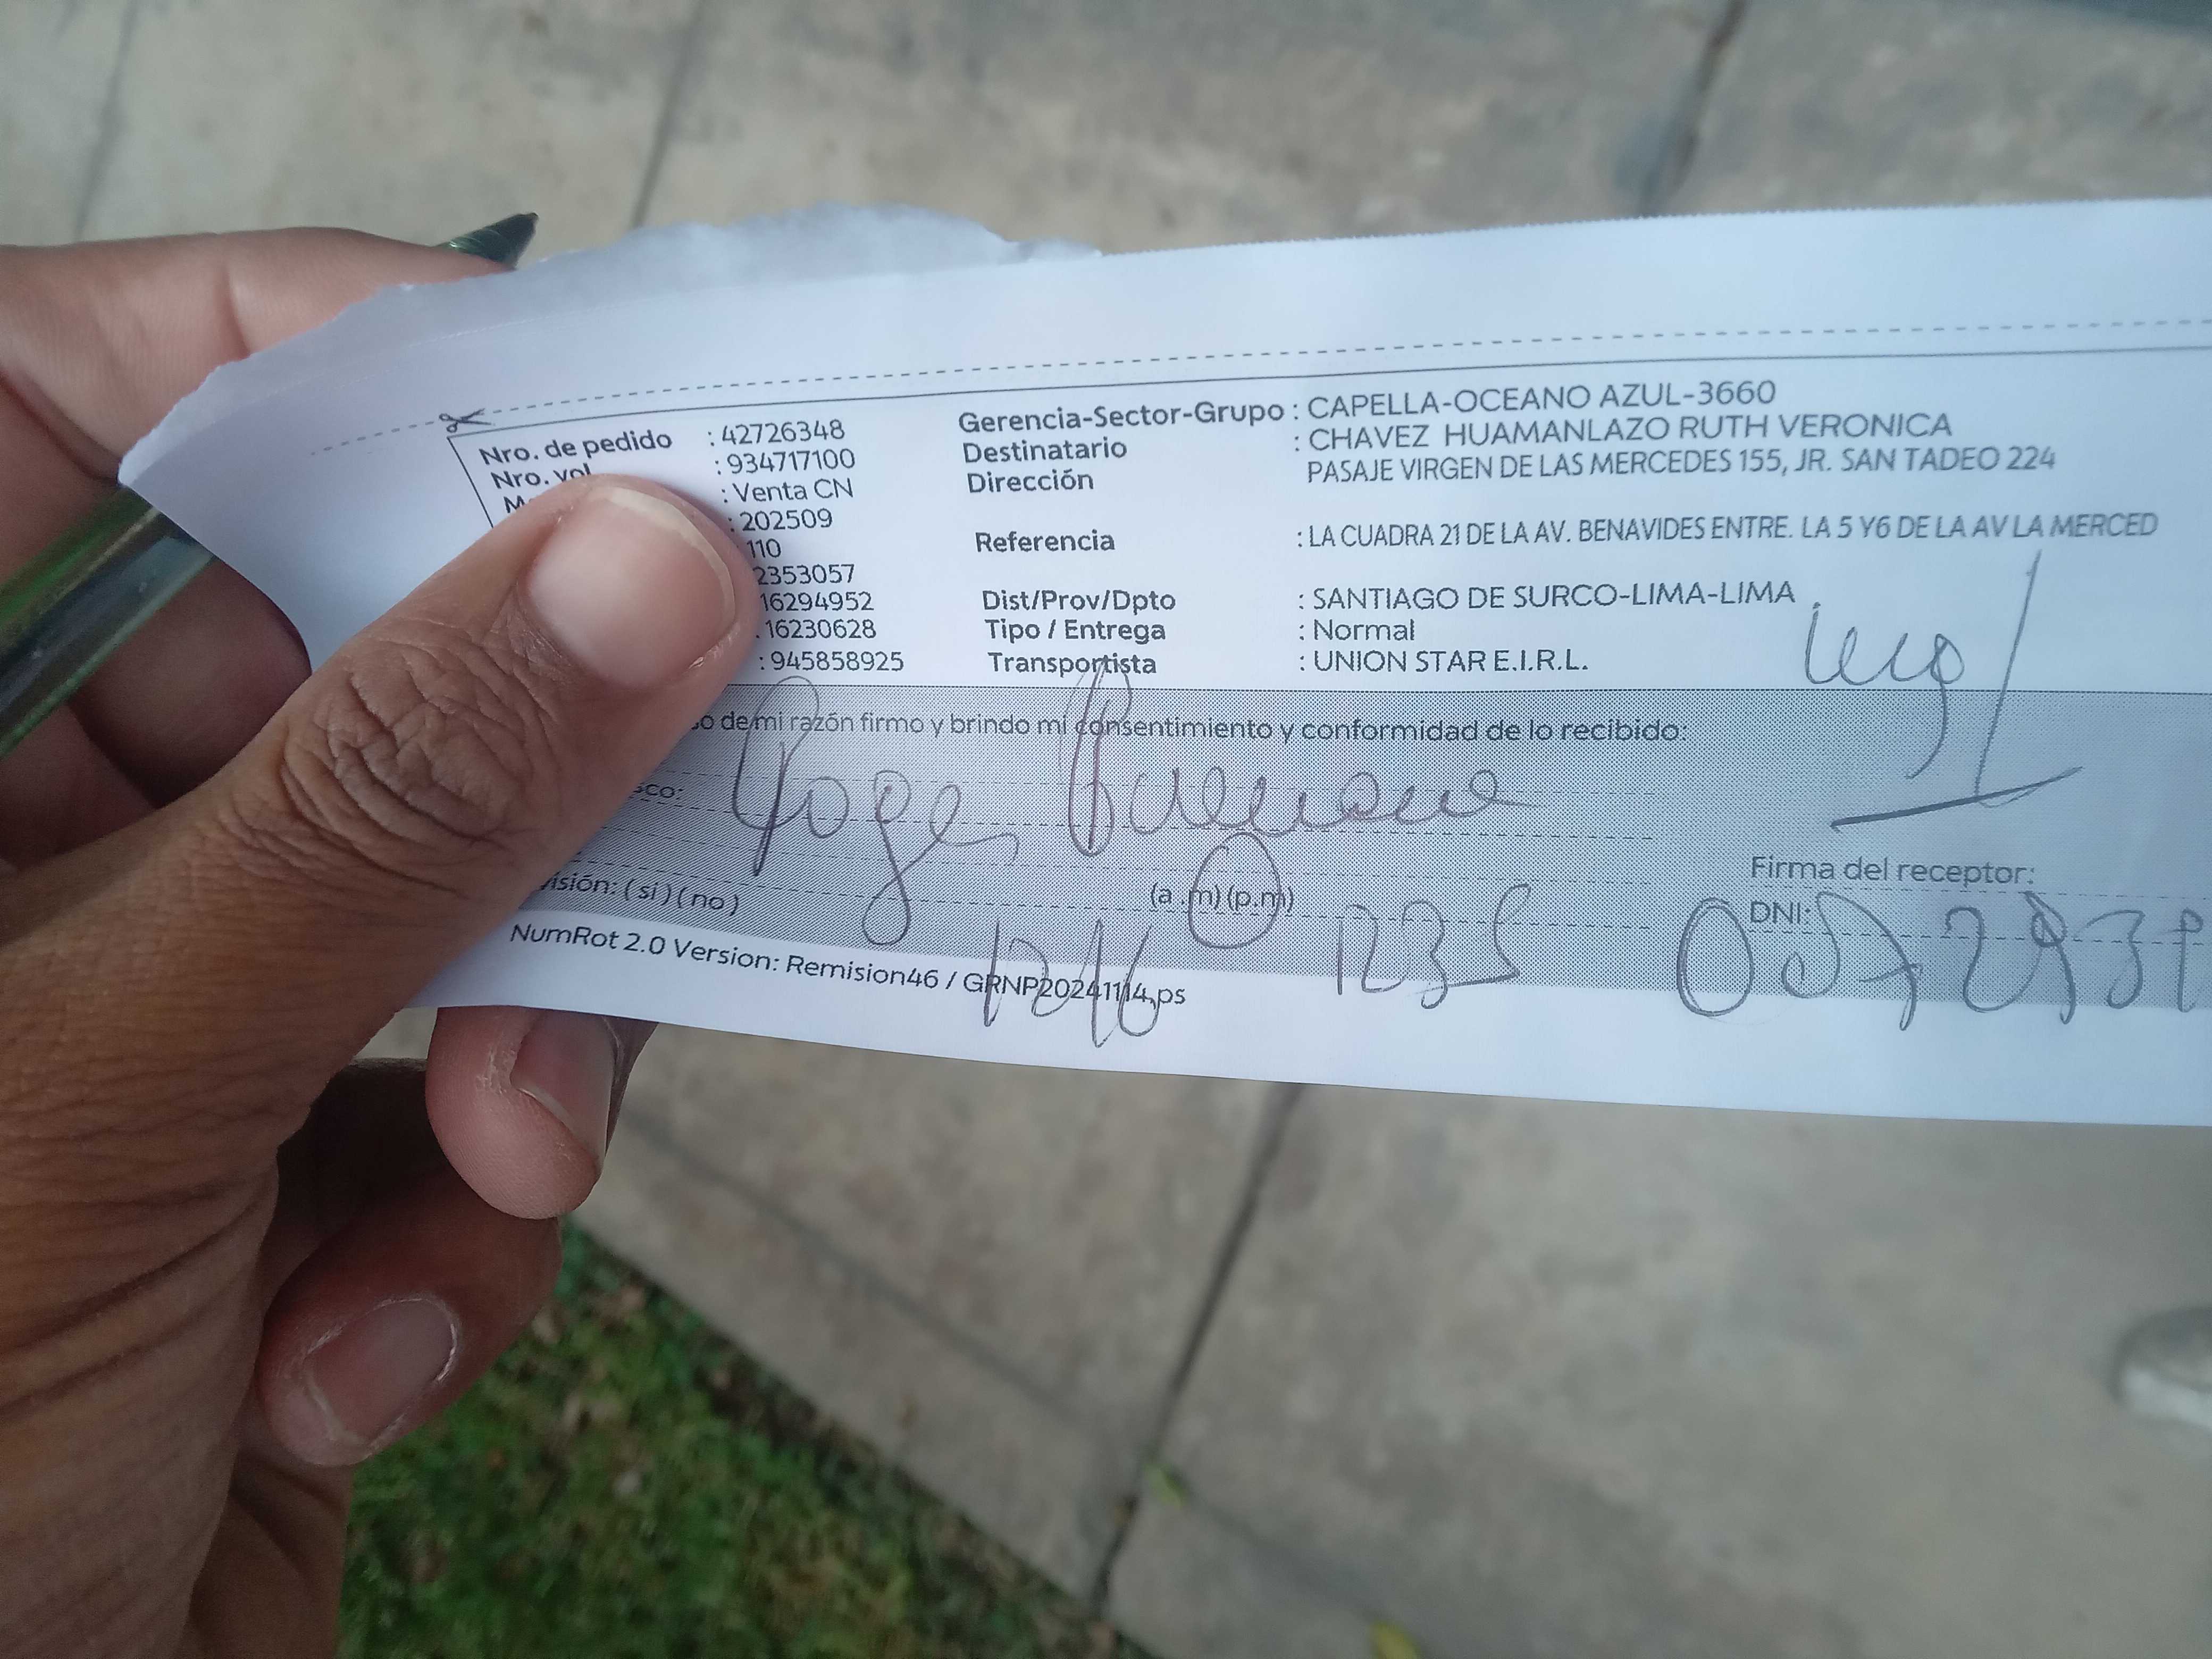 Nro. de pedido : 42726348
Nro. vol : 934717100
: Venta CN
: 202509
110
2353057
16294952
16230628
: 945858925
Gerencia-Sector-Grupo : CAPELLA-OCEANO AZUL-3660
Destinatario : CHAVEZ HUAMANLAZO RUTH VERONICA
Dirección PASAJE VIRGEN DE LAS MERCEDES 155, JR. SAN TADEO 224
Referencia : LA CUADRA 21 DE LA AV. BENAVIDES ENTRE. LA 5 Y6 DE LA AV LA MERCED
Dist/Prov/Dpto : SANTIAGO DE SURCO-LIMA-LIMA
Tipo / Entrega : Normal
Transportista : UNION STAR E.I.R.L.
de mi razón firmo y brindo mi consentimiento y conformidad de lo recibido:
sco:
Firma del receptor:
isión: ( si ) ( no ) (a .m) (p.m)
DNI:
1235
NumRot 2.0 Version: Remision46 / GRNP20241114.ps